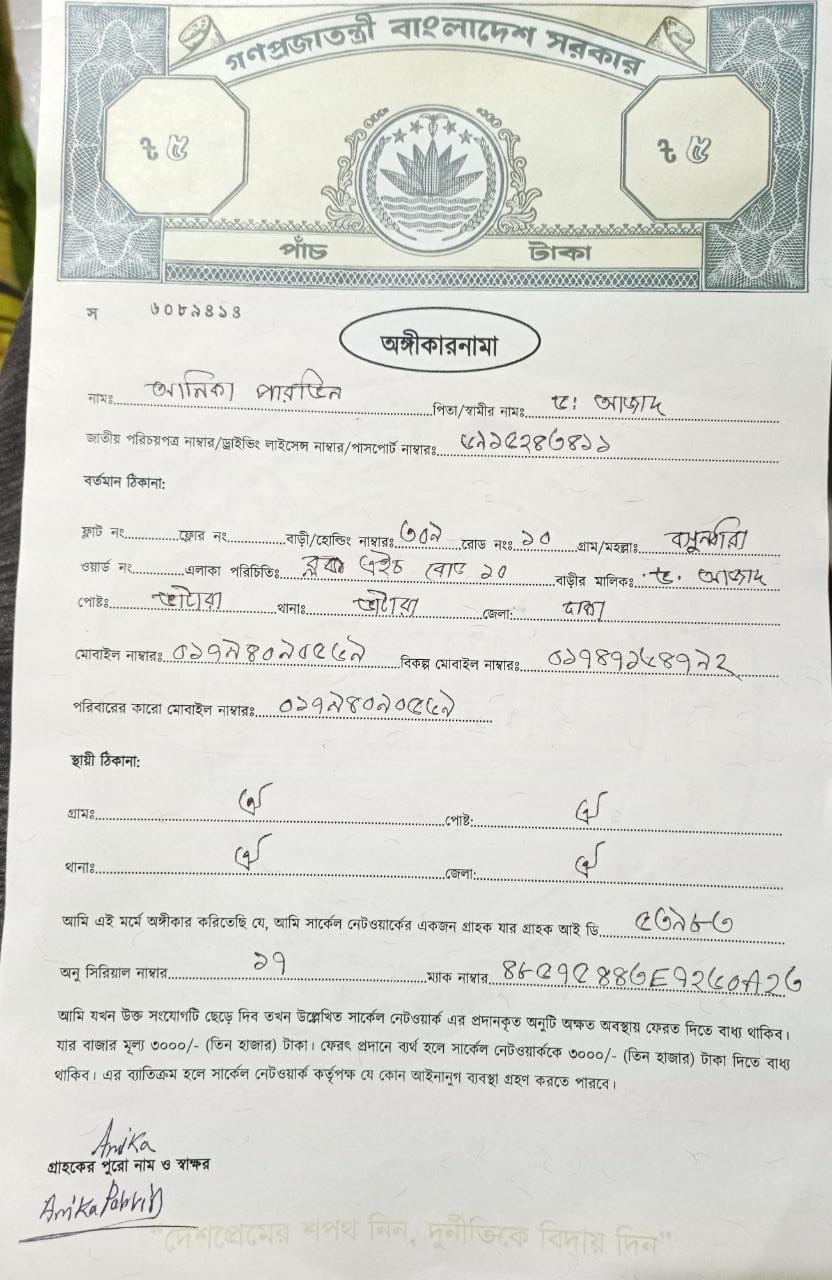 গণপ্রজাতন্ত্রী বাংলাদেশ সরকার
৳ ৫ ৳ ৫
পাঁচ টাকা
স ৬০৮৯৪১৪
অঙ্গীকারনামা
নামঃ আনিকা পারভিন পিতা/স্বামীর নামঃ আজাদ
জাতীয় পরিচয়পত্র নাম্বার/ড্রাইভিং লাইসেন্স নাম্বার/পাসপোর্ট নাম্বারঃ
বর্তমান ঠিকানা:
ফ্লাট নং ফ্লোর নং বাড়ী/হোল্ডিং নাম্বারঃ ৩০৯ রোড নংঃ ১০ গ্রাম/মহল্লাঃ বসুন্ধরা
ওয়ার্ড নং এলাকা পরিচিতিঃ ব্লক এইচ রোড ১০ বাড়ীর মালিকঃ আজাদ
পোষ্টঃ ভাটারা থানাঃ ভাটারা জেলা: ঢাকা
মোবাইল নাম্বারঃ ০১৭৯৪০৯০৫৫৯ বিকল্প মোবাইল নাম্বারঃ
পরিবারের কারো মোবাইল নাম্বারঃ ০১৭৯৪০৯০৫৫৯
স্থায়ী ঠিকানা:
গ্রামঃ ঐ পোষ্ট: ঐ
থানাঃ ঐ জেলা: ঐ
আমি এই মর্মে অঙ্গীকার করিতেছি যে, আমি সার্কেল নেটওয়ার্কের একজন গ্রাহক যার গ্রাহক আই ডি ৫৩৯৮৩
অনু সিরিয়াল নাম্বার ১৭ ম্যাক নাম্বার
আমি যখন উক্ত সংযোগটি ছেড়ে দিব তখন উল্লেখিত সার্কেল নেটওয়ার্ক এর প্রদানকৃত অনুটি অক্ষত অবস্থায় ফেরত দিতে বাধ্য থাকিব।
যার বাজার মূল্য ৩০০০/- (তিন হাজার) টাকা। ফেরৎ প্রদানে ব্যর্থ হলে সার্কেল নেটওয়ার্ককে ৩০০০/- (তিন হাজার) টাকা দিতে বাধ্য
থাকিব। এর ব্যাতিক্রম হলে সার্কেল নেটওয়ার্ক কর্তৃপক্ষ যে কোন আইনানুগ ব্যবস্থা গ্রহণ করতে পারবে।
Anika
গ্রাহকের পুরো নাম ও স্বাক্ষর
Anika Pabrin
"দেশপ্রেমের শপথ নিন, দুর্নীতিকে বিদায় দিন"